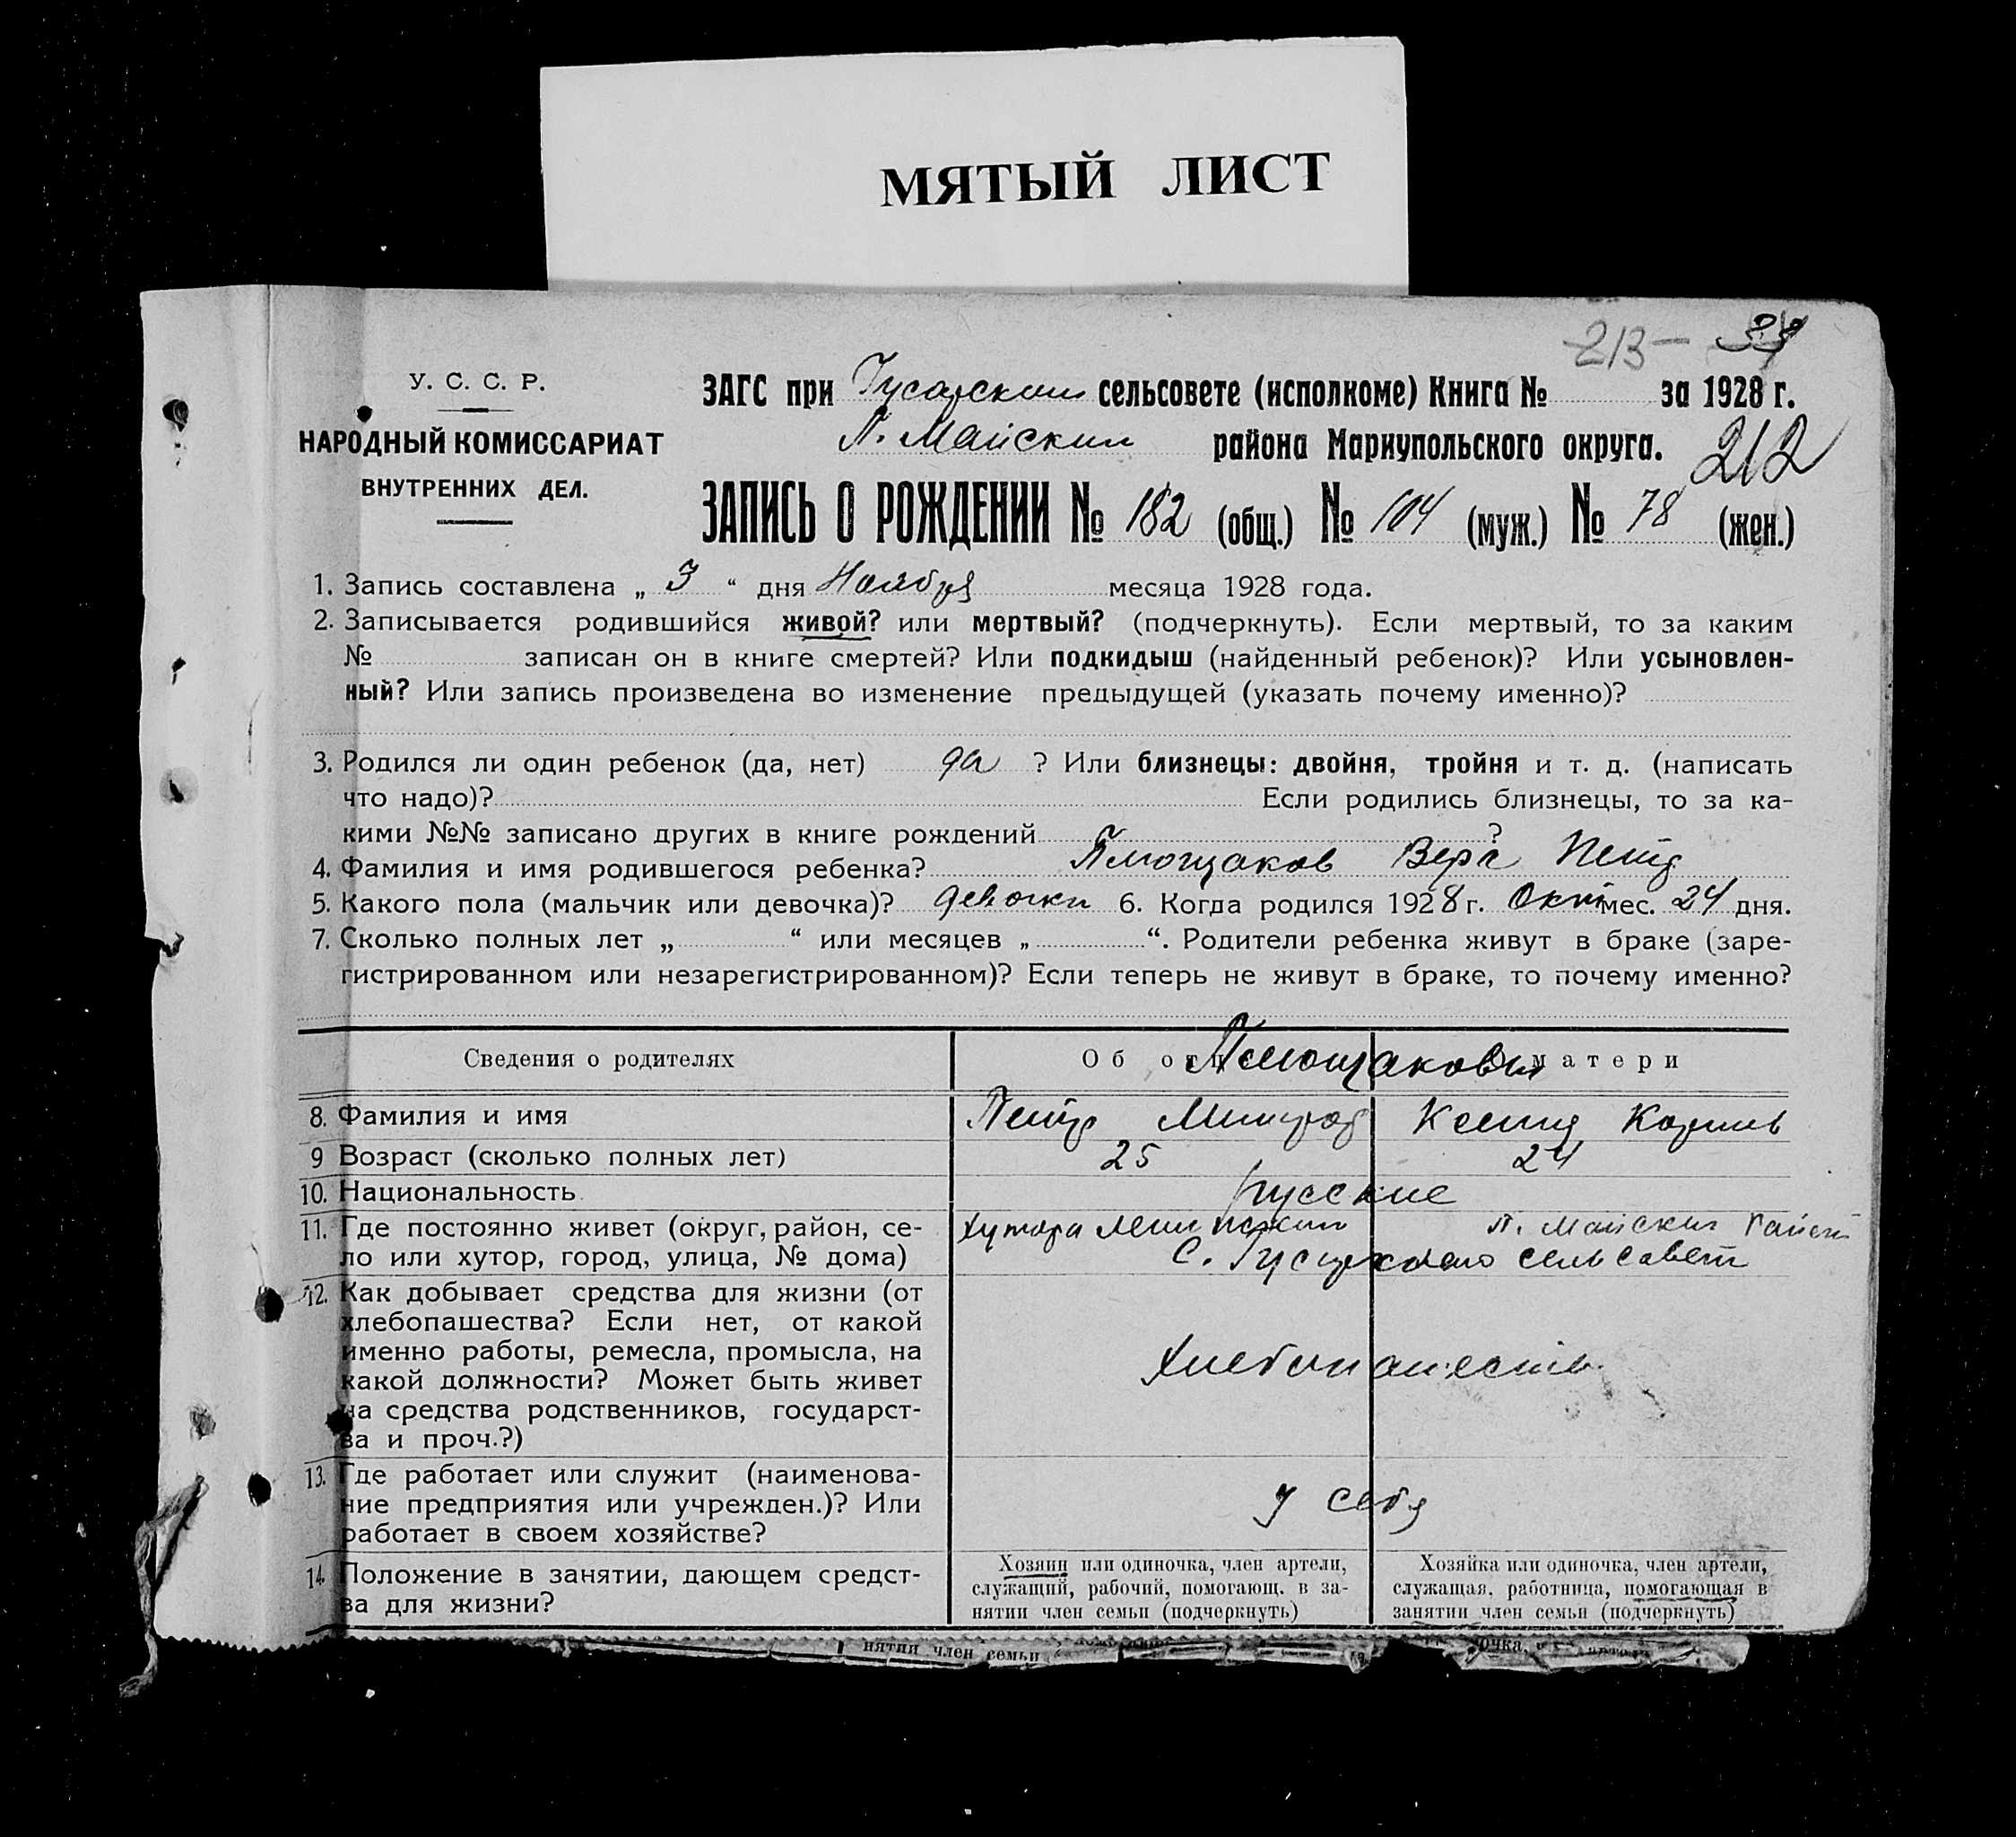 МЯТЫЙ ЛИСТ
213 —
У. С. С. Р.
НАРОДНЫЙ КОМИССАРИАТ
ВНУТРЕННИХ ДЕЛ.
ЗАГС при сельсовете (исполкоме) Книга № за 1928 г.
П. Майский района Мариупольского округа.
212
ЗАПИСЬ О РОЖДЕНИИ № 182 (общ.) № 104 (муж.) № 78 (жен.)
1. Запись составлена „ 3 “ дня Ноября месяца 1928 года.
2. Записывается родившийся живой? или мертвый? (подчеркнуть). Если мертвый, то за каким
№ записан он в книге смертей? Или подкидыш (найденный ребенок)? Или усыновлен-
ный? Или запись произведена во изменение предыдущей (указать почему именно)?
3. Родился ли один ребенок (да, нет) да ? Или близнецы: двойня, тройня и т. д. (написать
что надо)? Если родились близнецы, то за ка-
кими №№ записано других в книге рождений ?
4. Фамилия и имя родившегося ребенка? Вера
5. Какого пола (мальчик или девочка)? девочки 6. Когда родился 1928 г. Окт мес. 24 дня.
7. Сколько полных лет „ “ или месяцев „ “. Родители ребенка живут в браке (заре-
гистрированном или незарегистрированном)? Если теперь не живут в браке, то почему именно?
Сведения о родителях Об матери
8. Фамилия и имя Петр
9 Возраст (сколько полных лет) 25 24
10. Национальность русские
11. Где постоянно живет (округ, район, се-
ло или хутор, город, улица, № дома)
хутора П. Майский Район
с. сельсовет
12. Как добывает средства для жизни (от
хлебопашества? Если нет, от какой
именно работы, ремесла, промысла, на
какой должности? Может быть живет
на средства родственников, государст-
ва и проч.?)
Хлебопашеств
13. Где работает или служит (наименова-
ние предприятия или учрежден.)? Или
работает в своем хозяйстве?
у себя
14. Положение в занятии, дающем средст-
ва для жизни?
Хозяин или одиночка, член артели,
служащий, рабочий, помогающ. в за-
нятии член семьи (подчеркнуть)
Хозяйка или одиночка, член артели,
служащая, работница, помогающая в
занятии член семьи (подчеркнуть)
нятии член семьи